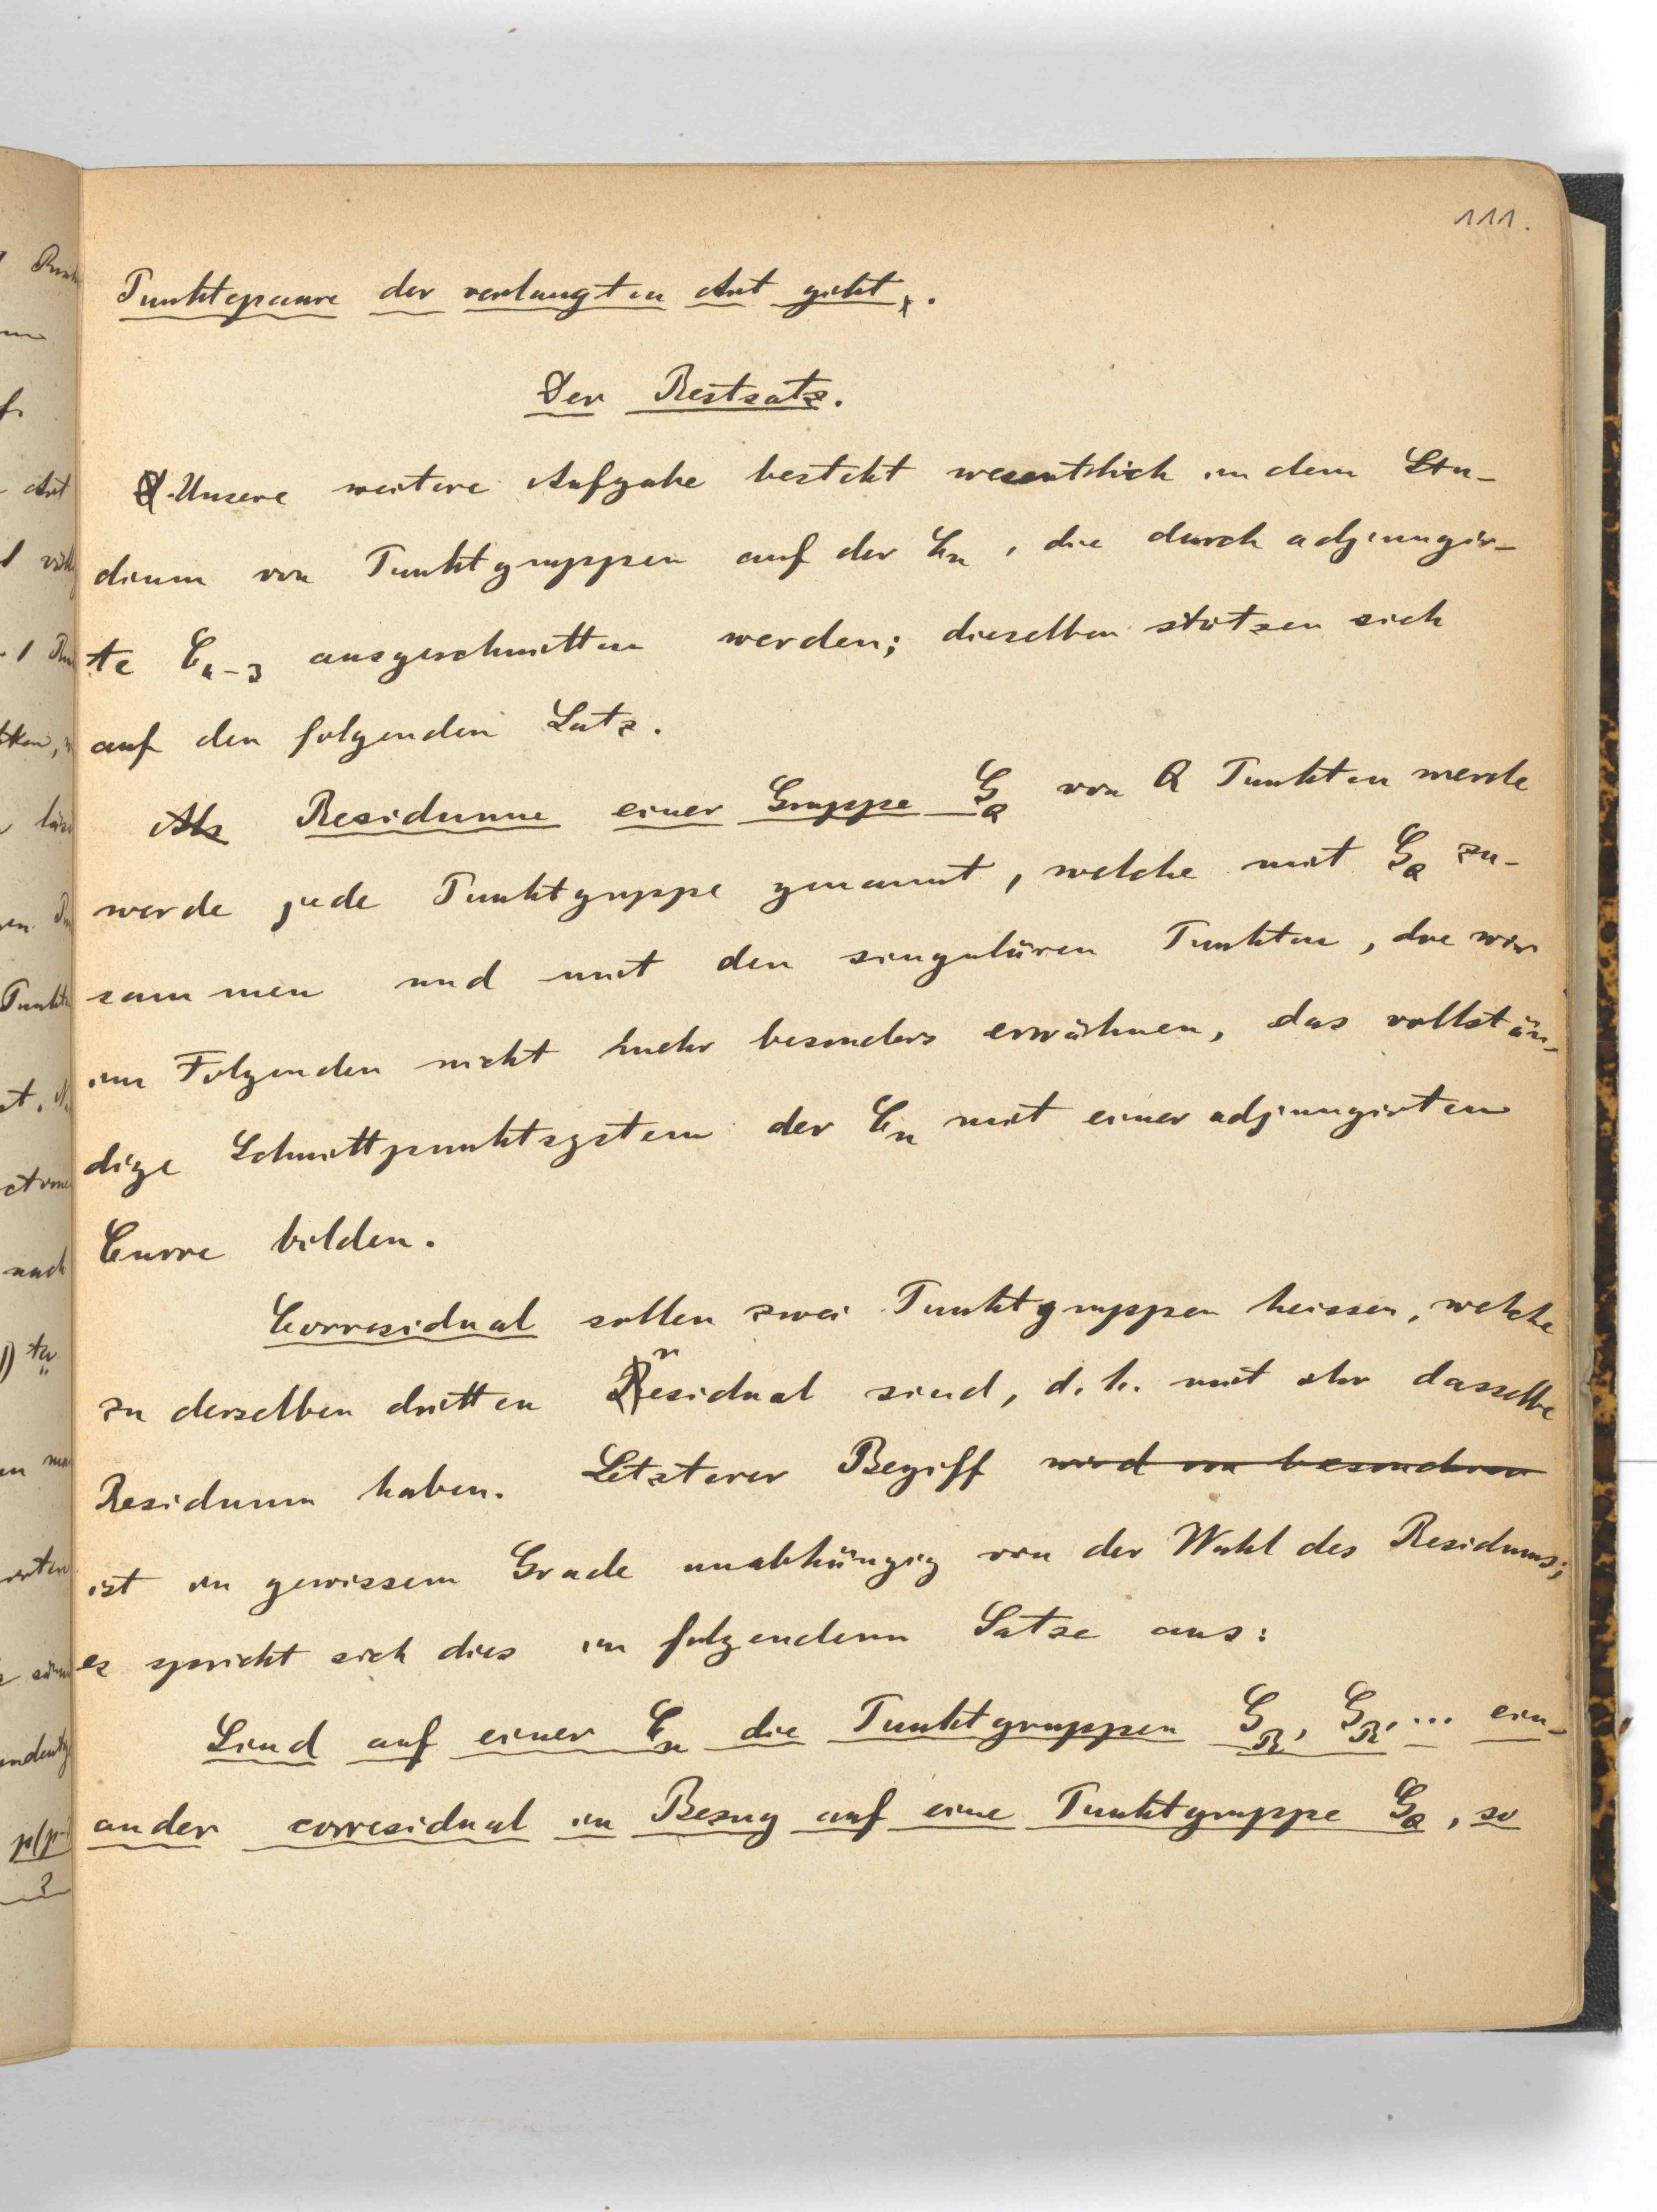 111.
Punktepaare der verlangten Art giebt.
Der Restsatz.
Unsere weitere Aufgabe besteht wesentlich in dem Stu-
dium von Punktgruppen auf der Cn, die durch adjungir-
te Cn-3 ausgeschnitten werden; dieselben stützen sich
auf den folgenden Satz.
Als Residuum einer Gruppe GQ von Q Punkten werde
werde jede Punktgruppe genannt, welche mit GQ zu-
sammen und mit den singulären Punkten, die wir
im Folgenden nicht mehr besonders erwähnen, das vollstän-
dige Schnittpunktsystem der Cn mit einer adjungirten
Curve bilden.
Corresidual sollen zwei Punktgruppen heissen, welche
zu derselben dritten Residual sind, d. h. mit ihr dasselbe
Residuum haben. Letzterer Begriff wird im besonderen
ist in gewissem Grade unabhängig von der Wahl des Residuums;
es spricht sich dies in folgendem Satze aus:
Sind auf einer Cn die Punktgruppen GR, GR', ... ein-
ander corresidual in Bezug auf eine Punktgruppe GQ, so